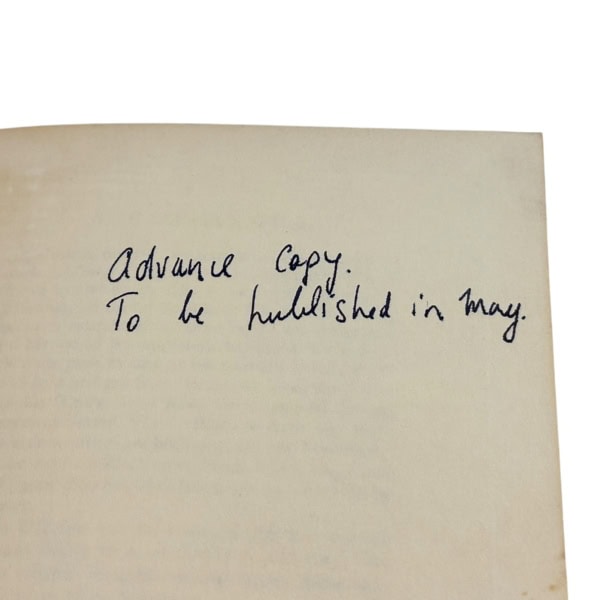 Advance Copy.
To be published in May.